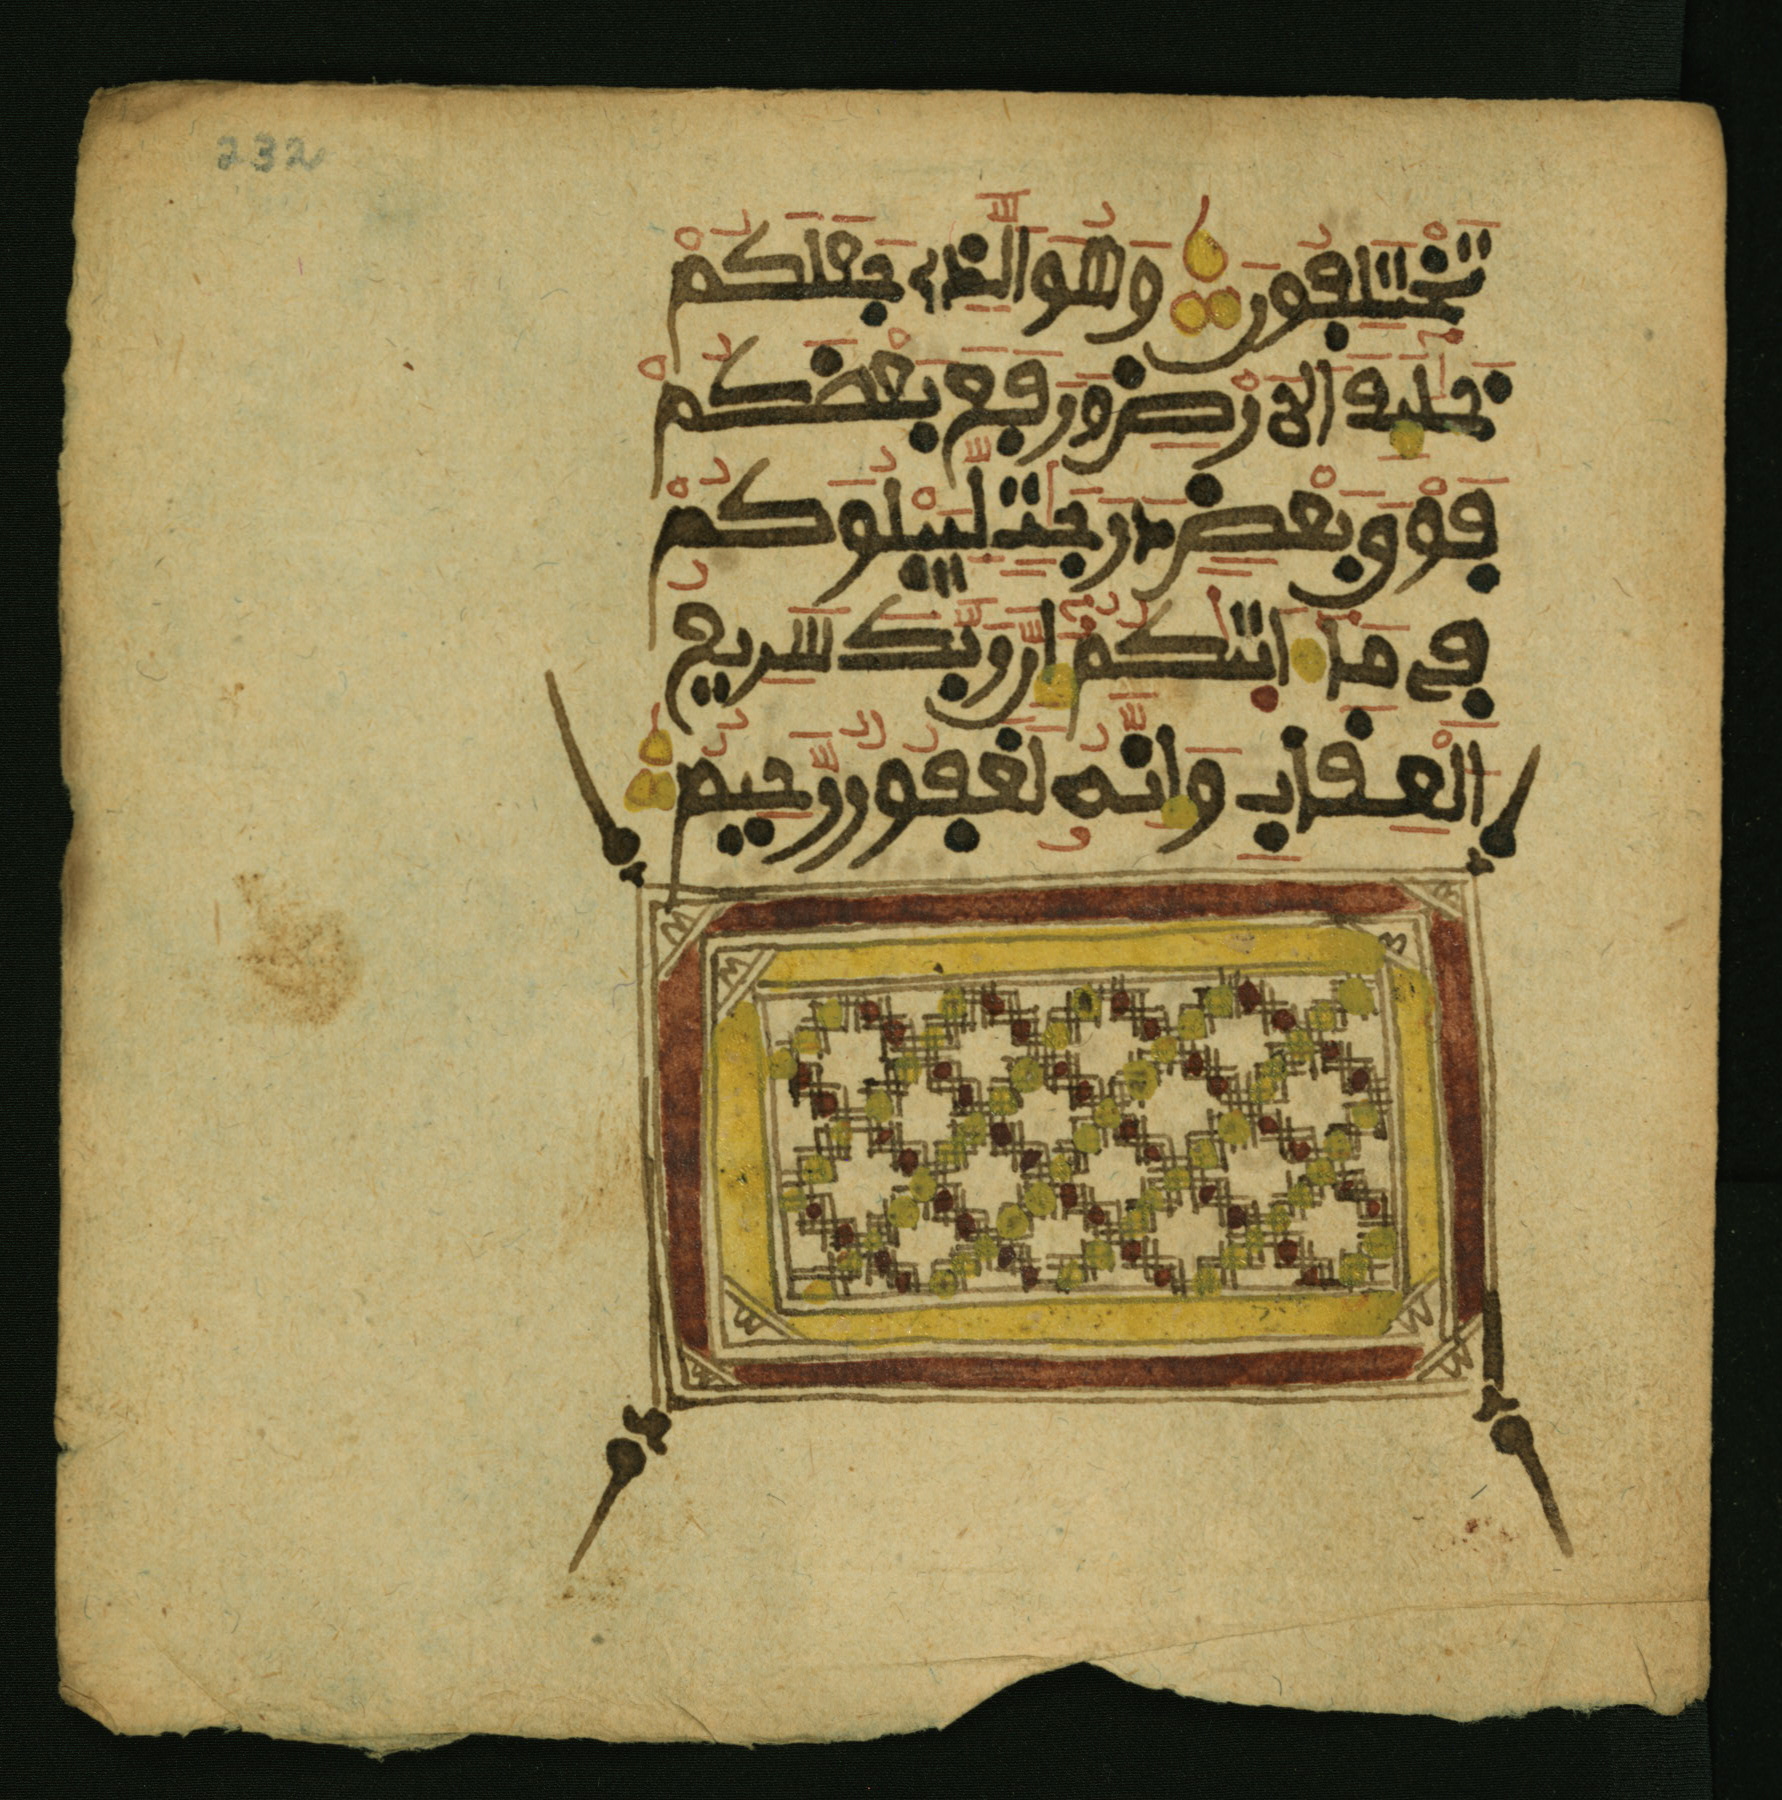 232
تَخْتَلِفُونَ وَهُوَ الَّذِے جَعَلَكُمْ
خَلَٰٓئِفَ الَارْضِ وَرَفَعَ بَعْضَكُمْ
فَوْقَ بَعْضٍ دَرَجَٰتٍ لِّيَبْلُوَكُمْ
فِے مَآ ءَاتَٰكُمُۥٓ إِنَّ رَبَّكَ سَرِيعُ
الْعِقَابِ وَإِنَّهُۥ لَغَفُورٌ رَّحِيمٌ